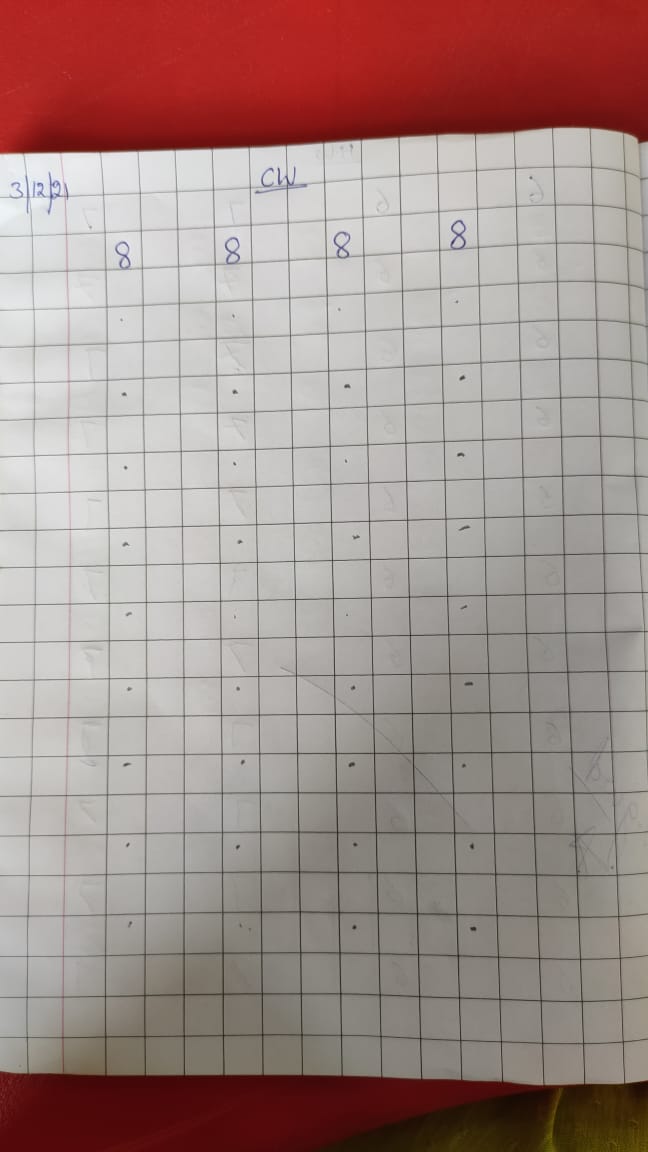 3/12/21 CW
8 8 8 8